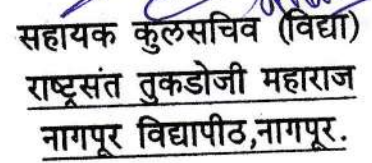 सहायक कुलसचिव (विद्या)
राष्ट्रसंत तुकडोजी महाराज
नागपूर विद्यापीठ,नागपूर.